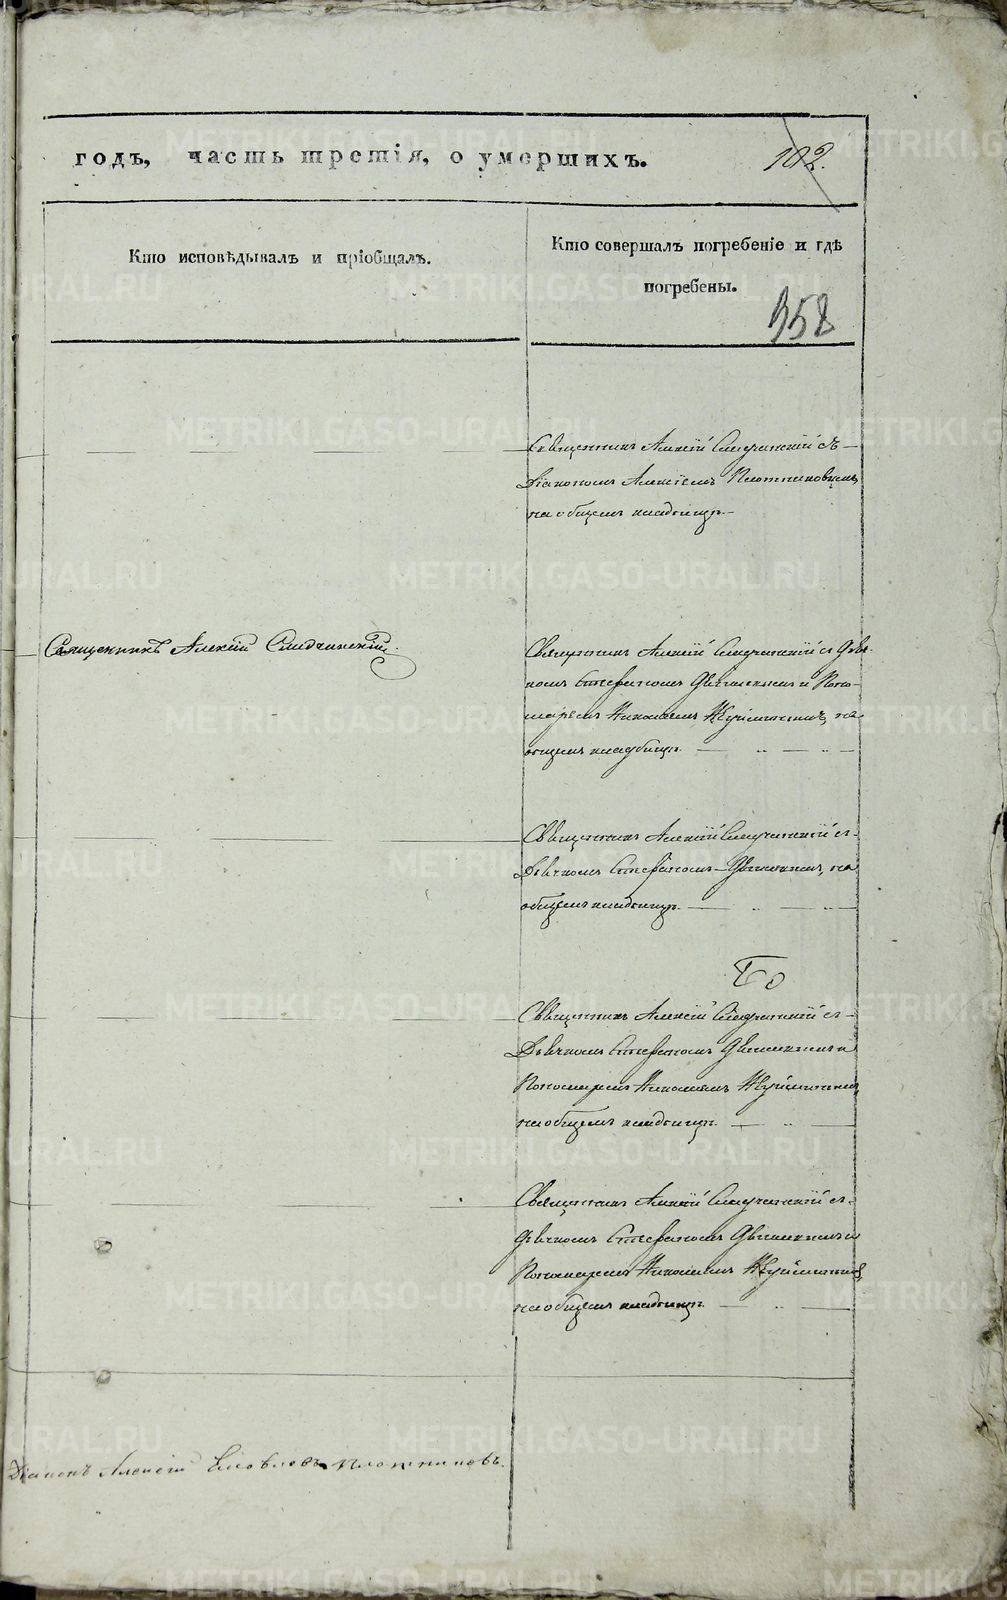 годъ, часть третія, о умершихъ. 102.
Кто исповѣдывалъ и пріобщалъ.
Кто совершалъ погребеніе и гдѣ
погребены.
358
Священникъ Алексій съ
Діакономъ Алексіемъ Плотниковымъ,
на общемъ кладбищѣ.
Священникъ Алексій
Священникъ Алексій съ Дьяч-
комъ Стефаномъ и Поно-
маремъ Николаемъ на
общемъ кладбищѣ.
Священникъ Алексій съ
Дьячкомъ Стефаномъ на
общемъ кладбищѣ.
Священникъ Алексій съ
Дьячкомъ Стефаномъ и
Пономаремъ Николаемъ
на общемъ кладбищѣ.
Священникъ Алексій съ
Дьячкомъ Стефаномъ и
Пономаремъ Николаемъ
на общемъ кладбищѣ.
Діаконъ Алексій Плотниковъ.
METRIKI.GASO-URAL.RU